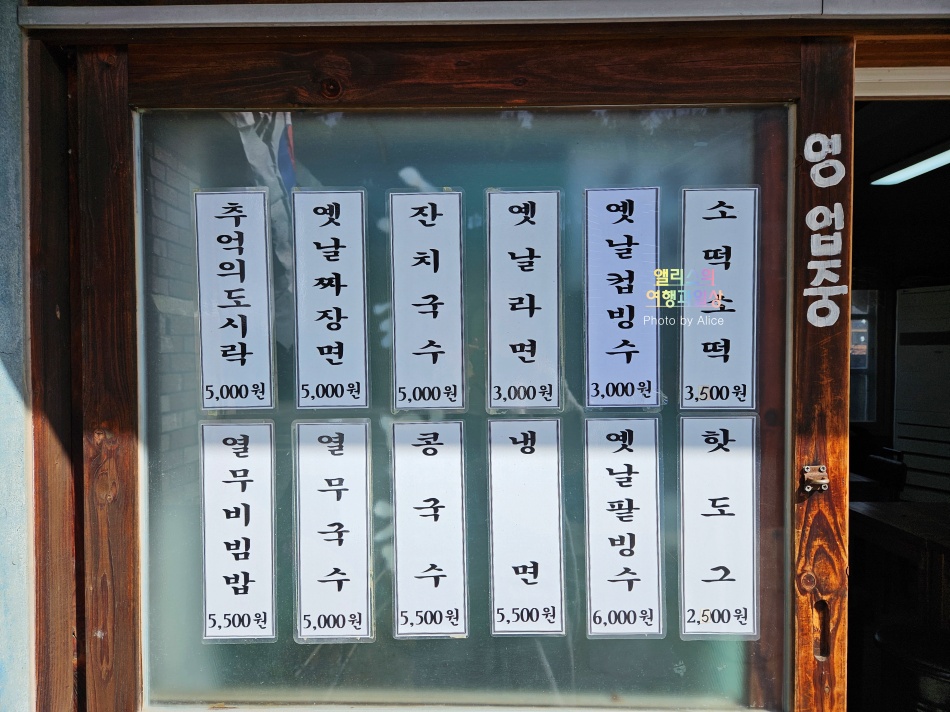 추억의도시락
5,000원
옛날짜장면
5,000원
잔치국수
5,000원
옛날라면
3,000원
옛날컵빙수
3,000원
소떡소떡
3,500원
열무비빔밥
5,500원
열무국수
5,000원
콩국수
5,500원
냉면
5,500원
옛날팥빙수
6,000원
핫도그
2,500원
영업중
앨리스의
여행과일상
Photo by Alice